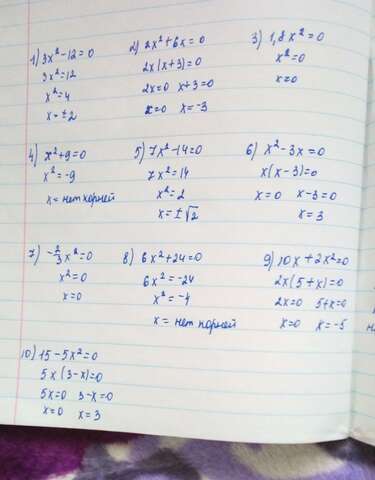 1) 3x² - 12 = 0
3x² = 12
x² = 4
x = ± 2
2) 2x² + 6x = 0
2x (x + 3) = 0
2x = 0 x + 3 = 0
x = 0 x = -3
3) 1,8x² = 0
x² = 0
x = 0
4) x² + 9 = 0
x² = -9
x = нет корней
5) 7x² - 14 = 0
7x² = 14
x² = 2
x = ± √2
6) x² - 3x = 0
x (x - 3) = 0
x = 0 x - 3 = 0
x = 3
7) -2/3 x² = 0
x² = 0
x = 0
8) 6x² + 24 = 0
6x² = -24
x² = -4
x = нет корней
9) 10x + 2x² = 0
2x (5 + x) = 0
2x = 0 5 + x = 0
x = 0 x = -5
10) 15 - 5x² = 0
5x (3 - x) = 0
5x = 0 3 - x = 0
x = 0 x = 3